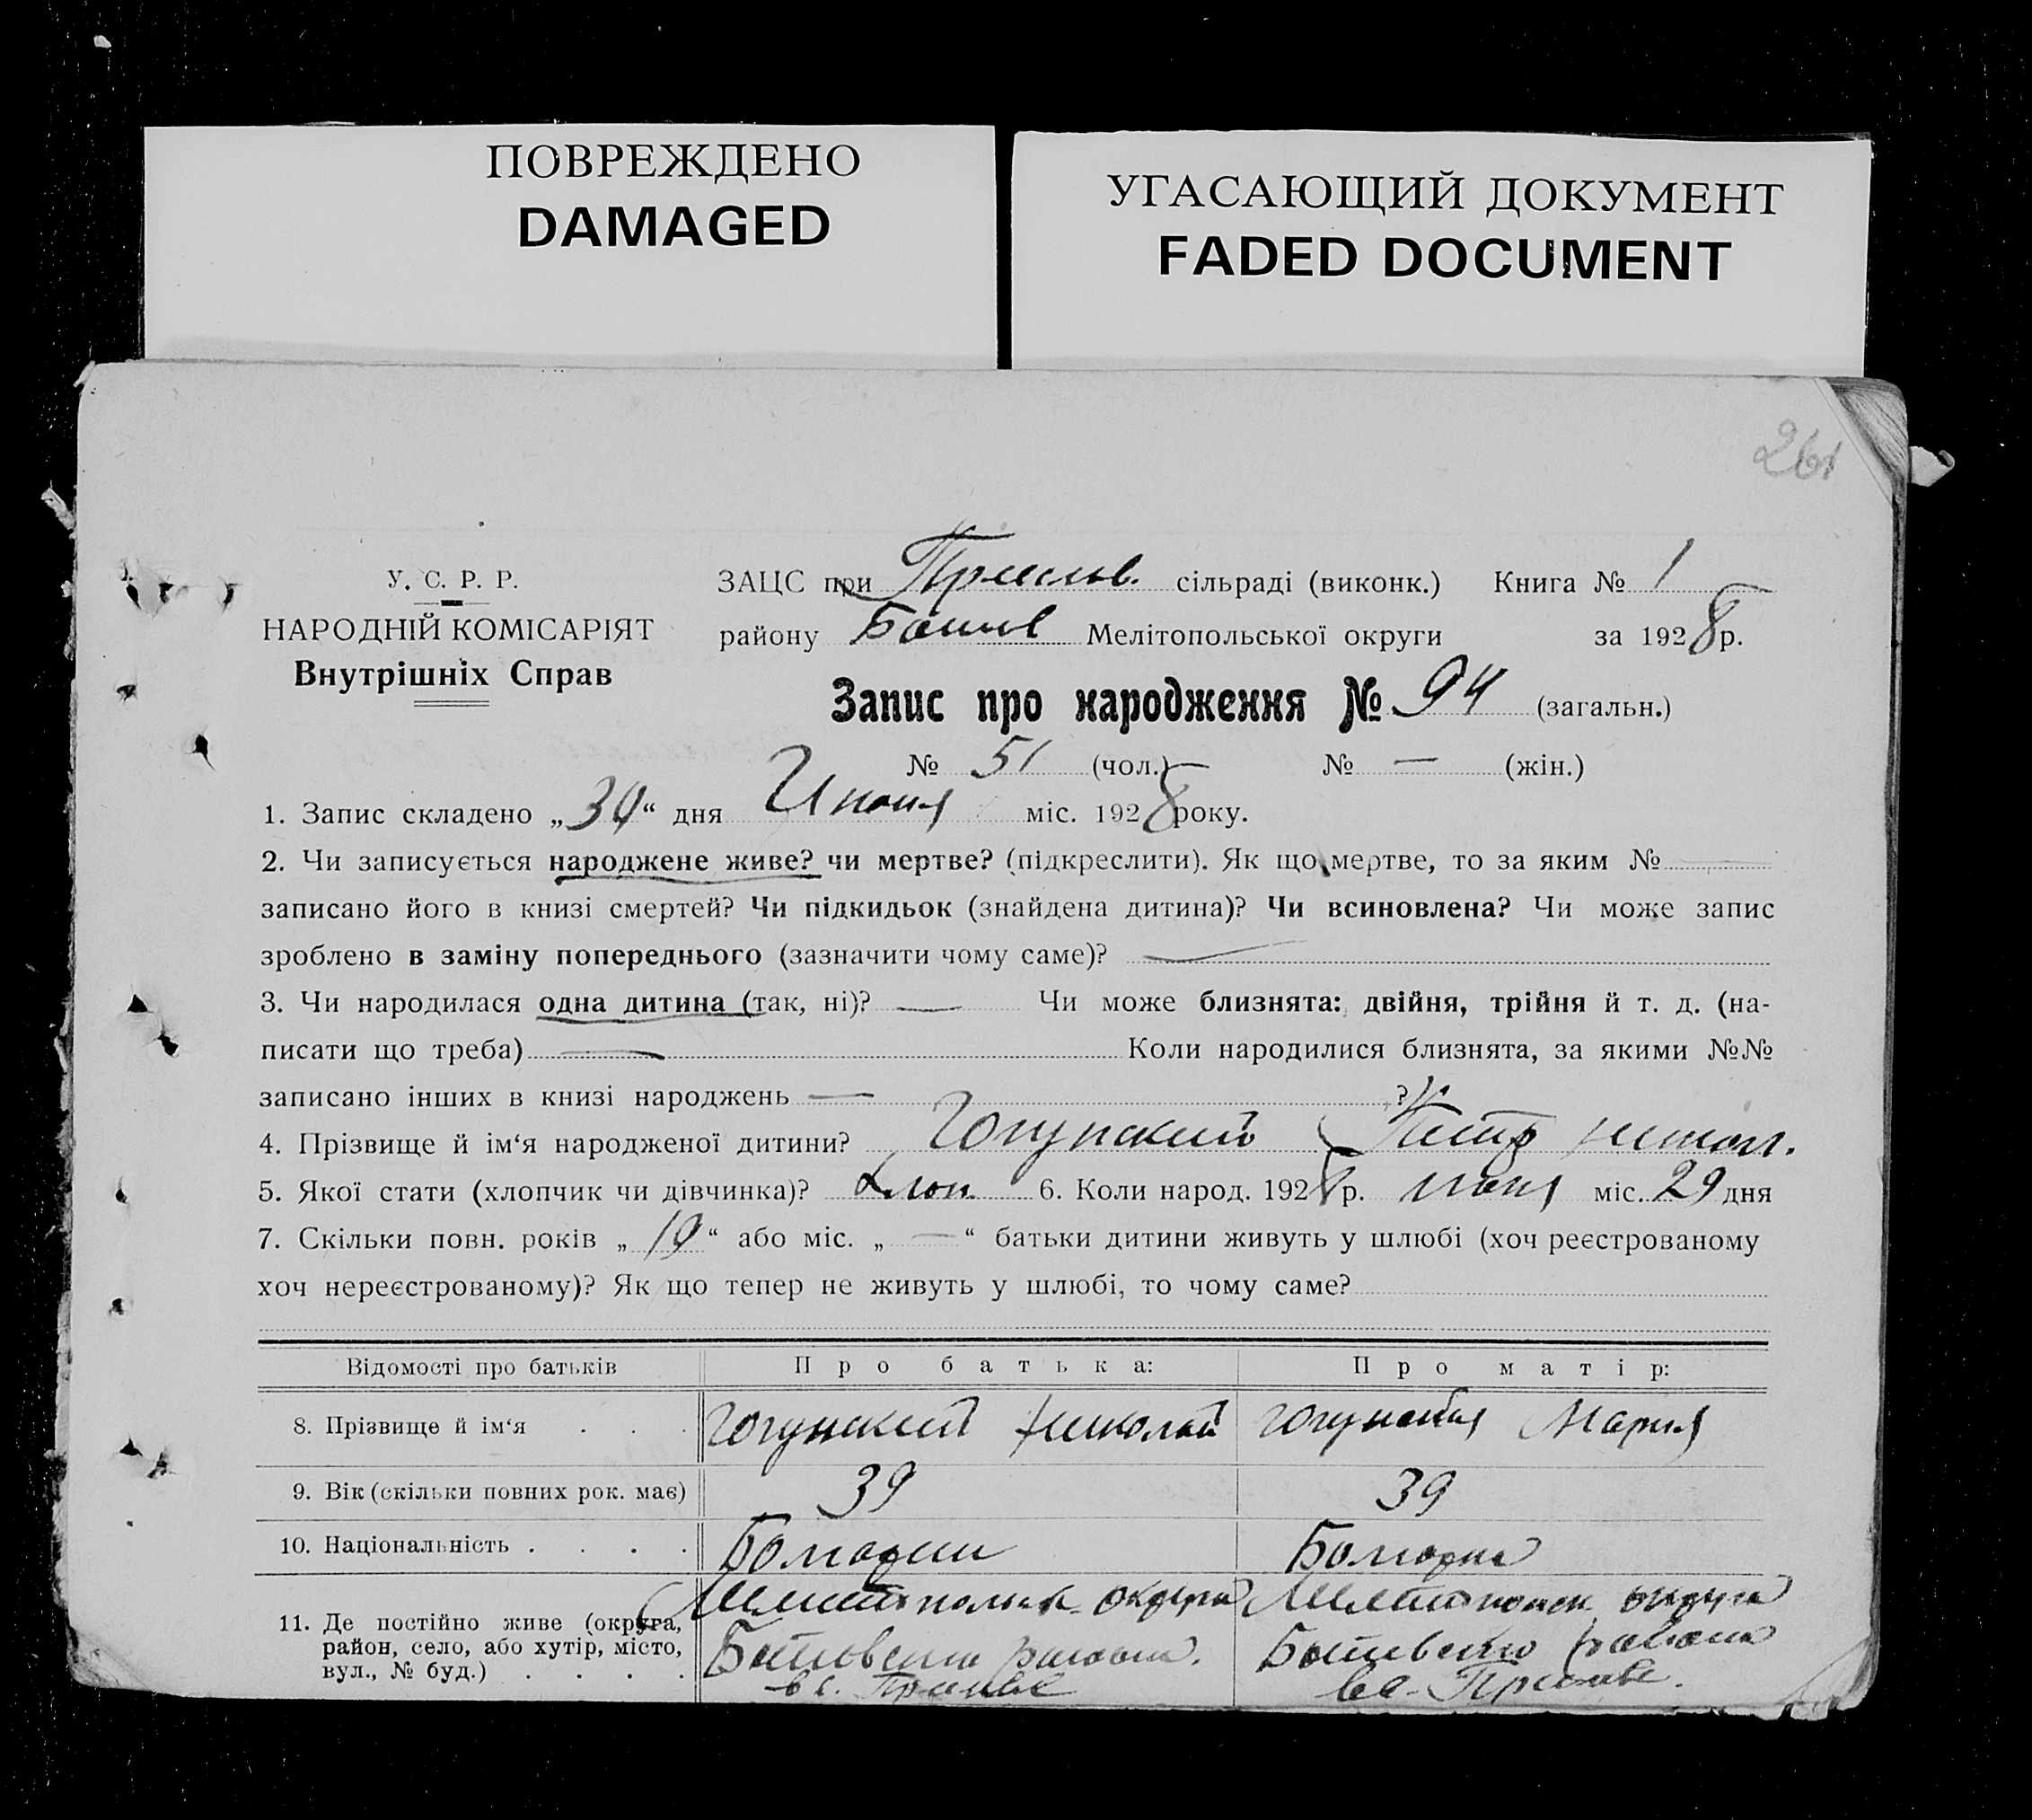 ПОВРЕЖДЕНО
DAMAGED
УГАСАЮЩИЙ ДОКУМЕНТ
FADED DOCUMENT
261
У. С. Р. Р.
НАРОДНІЙ КОМІСАРІЯТ
Внутрішніх Справ
ЗАЦС при Преслав. сільраді (виконк.) Книга № 1
району Мелітопольської округи за 1928 р.
Запис про народження № 94 (загальн.)
№ 51 (чол.) № — (жін.)
1. Запис складено „30“ дня Июня міс. 1928 року.
2. Чи записується народжене живе? чи мертве? (підкреслити). Як що мертве, то за яким №
записано його в книзі смертей? Чи підкидьок (знайдена дитина)? Чи всиновлена? Чи може запис
зроблено в заміну попереднього (зазначити чому саме)? —
3. Чи народилася одна дитина (так, ні)? — Чи може близнята: двійня, трійня й т. д. (на-
писати що треба) — Коли народилися близнята, за якими №№
записано інших в книзі народжень — ?
4. Прізвище й ім‘я народженої дитини? Гогунский Петр Никол.
5. Якої стати (хлопчик чи дівчинка)? Хлоп. 6. Коли народ. 1928 р. июня міс. 29 дня
7. Скільки повн. років „19“ або міс. „—“ батьки дитини живуть у шлюбі (хоч реєстрованому
хоч нереєстрованому)? Як що тепер не живуть у шлюбі, то чому саме?
Відомості про батьків Про батька: Про матір:
8. Прізвище й ім‘я . . . Гогунский Николай Гогунская Мария
9. Вік (скільки повних рок. має) 39 39
10. Національність . . . . Болгарин Болгарка
11. Де постійно живе (округа, район, село, або хутір, місто, вул., № буд.) . . . .
Мелитопольск. округа
Ботьевского района.
в с. Преславе
Мелитопольск округа
Ботиевского района
в с. Преславе.